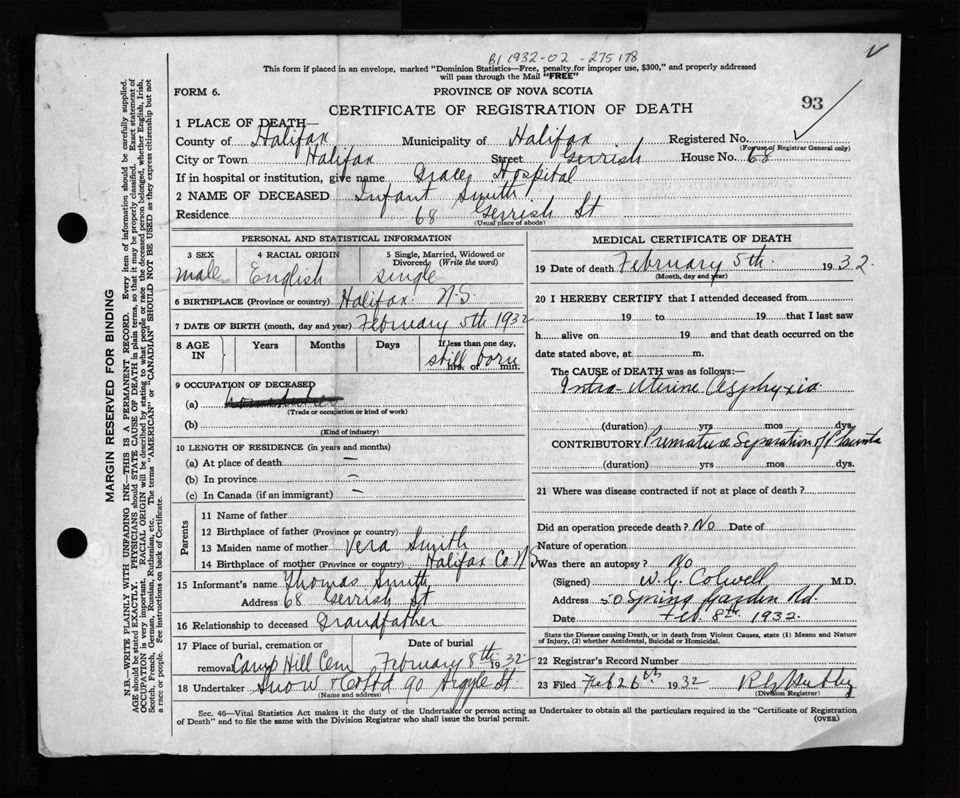 B1 1932-02-275178
This form if placed in an envelope, marked "Dominion Statistics—Free, penalty for improper use, $300," and properly addressed
will pass through the Mail "FREE"
FORM 6.
PROVINCE OF NOVA SCOTIA
CERTIFICATE OF REGISTRATION OF DEATH
93
1 PLACE OF DEATH—
County of Halifax Municipality of Halifax Registered No.
(For use of Registrar General only)
City or Town Halifax Street Gerrish House No. 68
If in hospital or institution, give name Grace Hospital
2 NAME OF DECEASED Infant Smith
Residence 68 Gerrish St
(Usual place of abode)
PERSONAL AND STATISTICAL INFORMATION
3 SEX 4 RACIAL ORIGIN 5 Single, Married, Widowed or Divorced (Write the word)
male English single
6 BIRTHPLACE (Province or country) Halifax N.S.
7 DATE OF BIRTH (month, day and year) February 5th 1932
8 AGE IN Years Months Days If less than one day,
still born
hrs. or min.
9 OCCUPATION OF DECEASED
(a)
(Trade or occupation or kind of work)
(b)
(Kind of industry)
10 LENGTH OF RESIDENCE (in years and months)
(a) At place of death —
(b) In province —
(c) In Canada (if an immigrant) —
Parents
11 Name of father
12 Birthplace of father (Province or country)
13 Maiden name of mother Vera Smith
14 Birthplace of mother (Province or country) Halifax Co N.S
15 Informant's name Thomas Smith
Address 68 Gerrish St
16 Relationship to deceased Grandfather
17 Place of burial, cremation or Date of burial
removal Camp Hill Cem February 8th 1932
18 Undertaker Snow & Co Ltd 90 Argyle St
(Name and address)
MEDICAL CERTIFICATE OF DEATH
19 Date of death February 5th. 1932.
(Month, day and year)
20 I HEREBY CERTIFY that I attended deceased from
19 to 19 that I last saw
h alive on 19 and that death occurred on the
date stated above, at m.
The CAUSE of DEATH was as follows:—
Intra-Uterine Asphyxia
(duration) yrs mos dys.
CONTRIBUTORY Premature Separation of Placenta
(duration) yrs mos dys.
21 Where was disease contracted if not at place of death?
Did an operation precede death? No Date of
Nature of operation
Was there an autopsy? No
(Signed) W. G. Colwell M.D.
Address 50 Spring Garden Rd.
Date Feb. 8th. 1932.
State the Disease causing Death, or in death from Violent Causes, state (1) Means and Nature
of Injury, (2) whether Accidental, Suicidal or Homicidal.
22 Registrar's Record Number
23 Filed Feb 26th 1932
(Division Registrar)
Sec. 46—Vital Statistics Act makes it the duty of the Undertaker or person acting as Undertaker to obtain all the particulars required in the "Certificate of Registration
of Death" and to file the same with the Division Registrar who shall issue the burial permit.
(OVER)
MARGIN RESERVED FOR BINDING
N.B.—WRITE PLAINLY WITH UNFADING INK—THIS IS A PERMANENT RECORD. Every item of information should be carefully supplied.
AGE should be stated EXACTLY. PHYSICIANS should STATE CAUSE OF DEATH in plain terms, so that it may be properly classified. Exact statement of
OCCUPATION is very important. RACIAL ORIGIN will be described by stating to what people or race the deceased person belonged, whether English, Irish,
Scotch, French, German, Russian, Ruthenian, etc. The terms "AMERICAN" or "CANADIAN" SHOULD NOT BE USED as they express citizenship but not
a race or people. See instructions on back of Certificate.